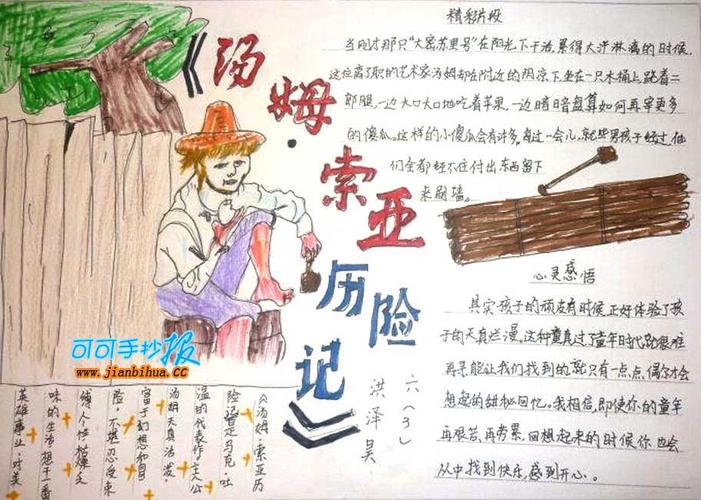 《汤姆·索亚历险记》
六(3)
洪泽昊
精彩片段
当刚才那只“大密苏里号”在阳光下干活,累得大汗淋漓的时候,
这位离了职的艺术家汤姆却在附近的阴凉下坐在一只木桶上跷着二
郎腿,一边大口大口地吃着苹果,一边暗暗盘算如何再宰更多
的傻瓜。这样的小傻瓜会有许多。每过一会儿,就些男孩子经过,他
们全都经不住付出东西留下
来刷墙。
心灵感悟
其实孩子的顽皮有时候正好体验了孩
子的天真烂漫,这种童真过了童年时代就很难
再寻能让我们找到的就只有一点点,偶尔才会
想起的甜秘回忆。我相信,即使你的童年
再艰苦,再劳累,回想起来的时候你也会
从中找到快乐,感到开心。
《汤姆·索亚历
险记》是马克·吐
温的代表作,主人公
汤姆天真活泼、
富于幻想和冒
险,不堪忍受束
缚个性、枯燥乏
味的生活,想干一番
英雄事业。
可可手抄报
www.jianbihua.cc